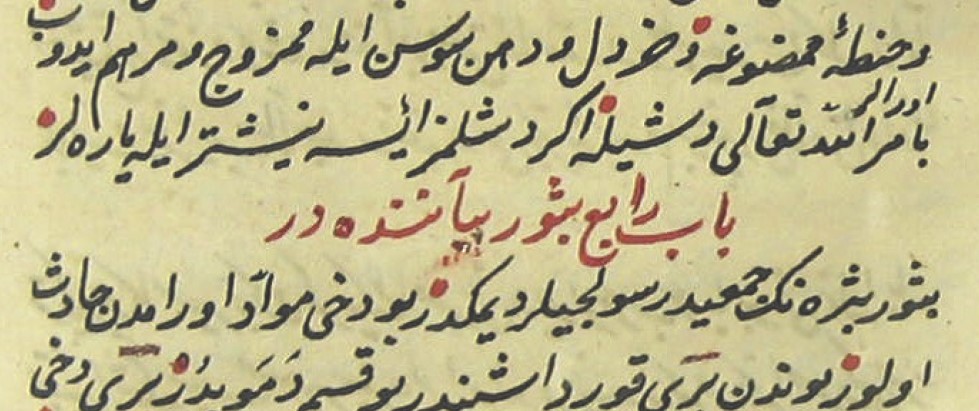 و حنطهٔ ممضوغه و خردل و دهن سوسن ايله ممزوج و مرهم ايدوب
اورالر
بامر الله تعالى دشيله اكر دشلمز ايسه نيشتر ايله ياره لر
باب رابع بثور بياننده در
بثور بثره نك جمعيدر سولجيلر ديمكدر بو دخى مواد اورامدن حادث
اولور بوندن برى قوردا شندر بو قسم دموىدر برى دخى